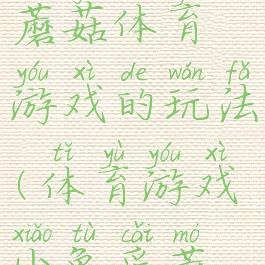 蘑菇体育
yóu xì de wán fǎ
游戏的玩法
tǐ yù yóu xì
(体育游戏
xiǎo tù cǎi mó
小兔采蘑